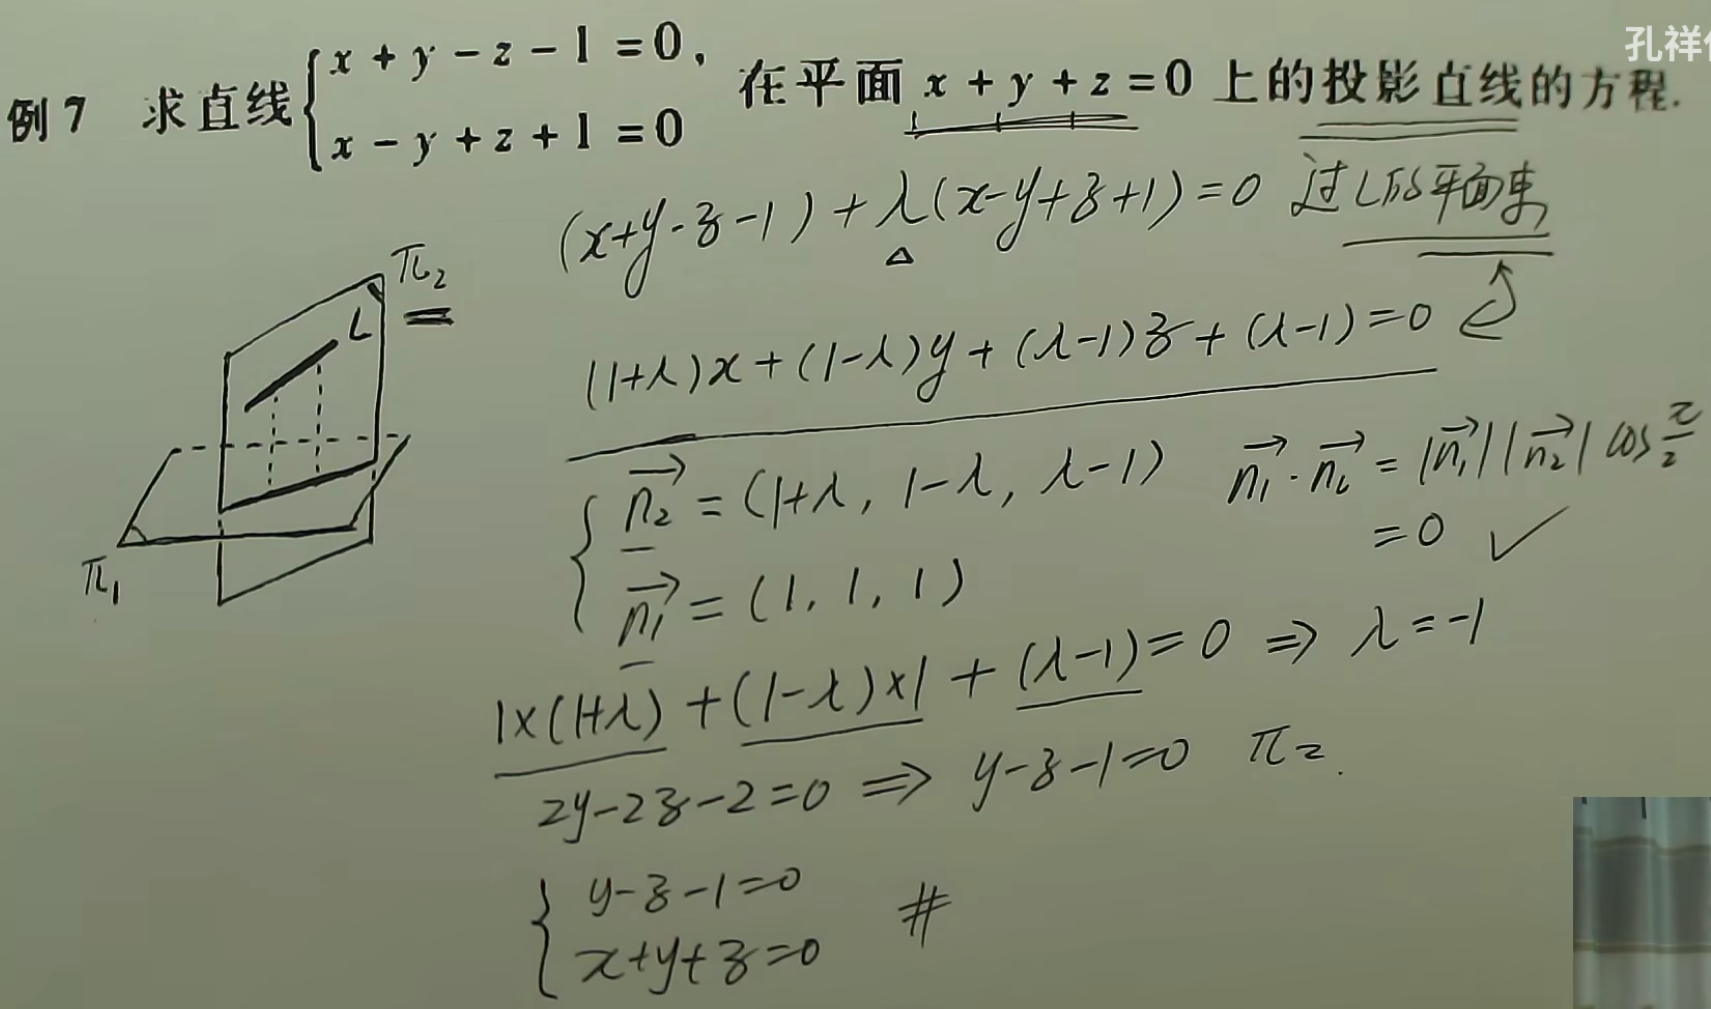 孔祥
例7 求直线{x+y-z-1=0, x-y+z+1=0 在平面 x+y+z=0 上的投影直线的方程.
(x+y-z-1)+λ(x-y+z+1)=0 过L的平面束
△
π₂
L
π₁
(1+λ)x+(1-λ)y+(λ-1)z+(λ-1)=0
{n₂→=(1+λ, 1-λ, λ-1) n₁→·n₂→=|n₁→||n₂→|cos π/2
=0 ✓
n₁→=(1, 1, 1)
1×(1+λ)+(1-λ)×1+(λ-1)=0 ⇒ λ=-1
2y-2z-2=0 ⇒ y-z-1=0 π₂.
{y-z-1=0
x+y+z=0 #